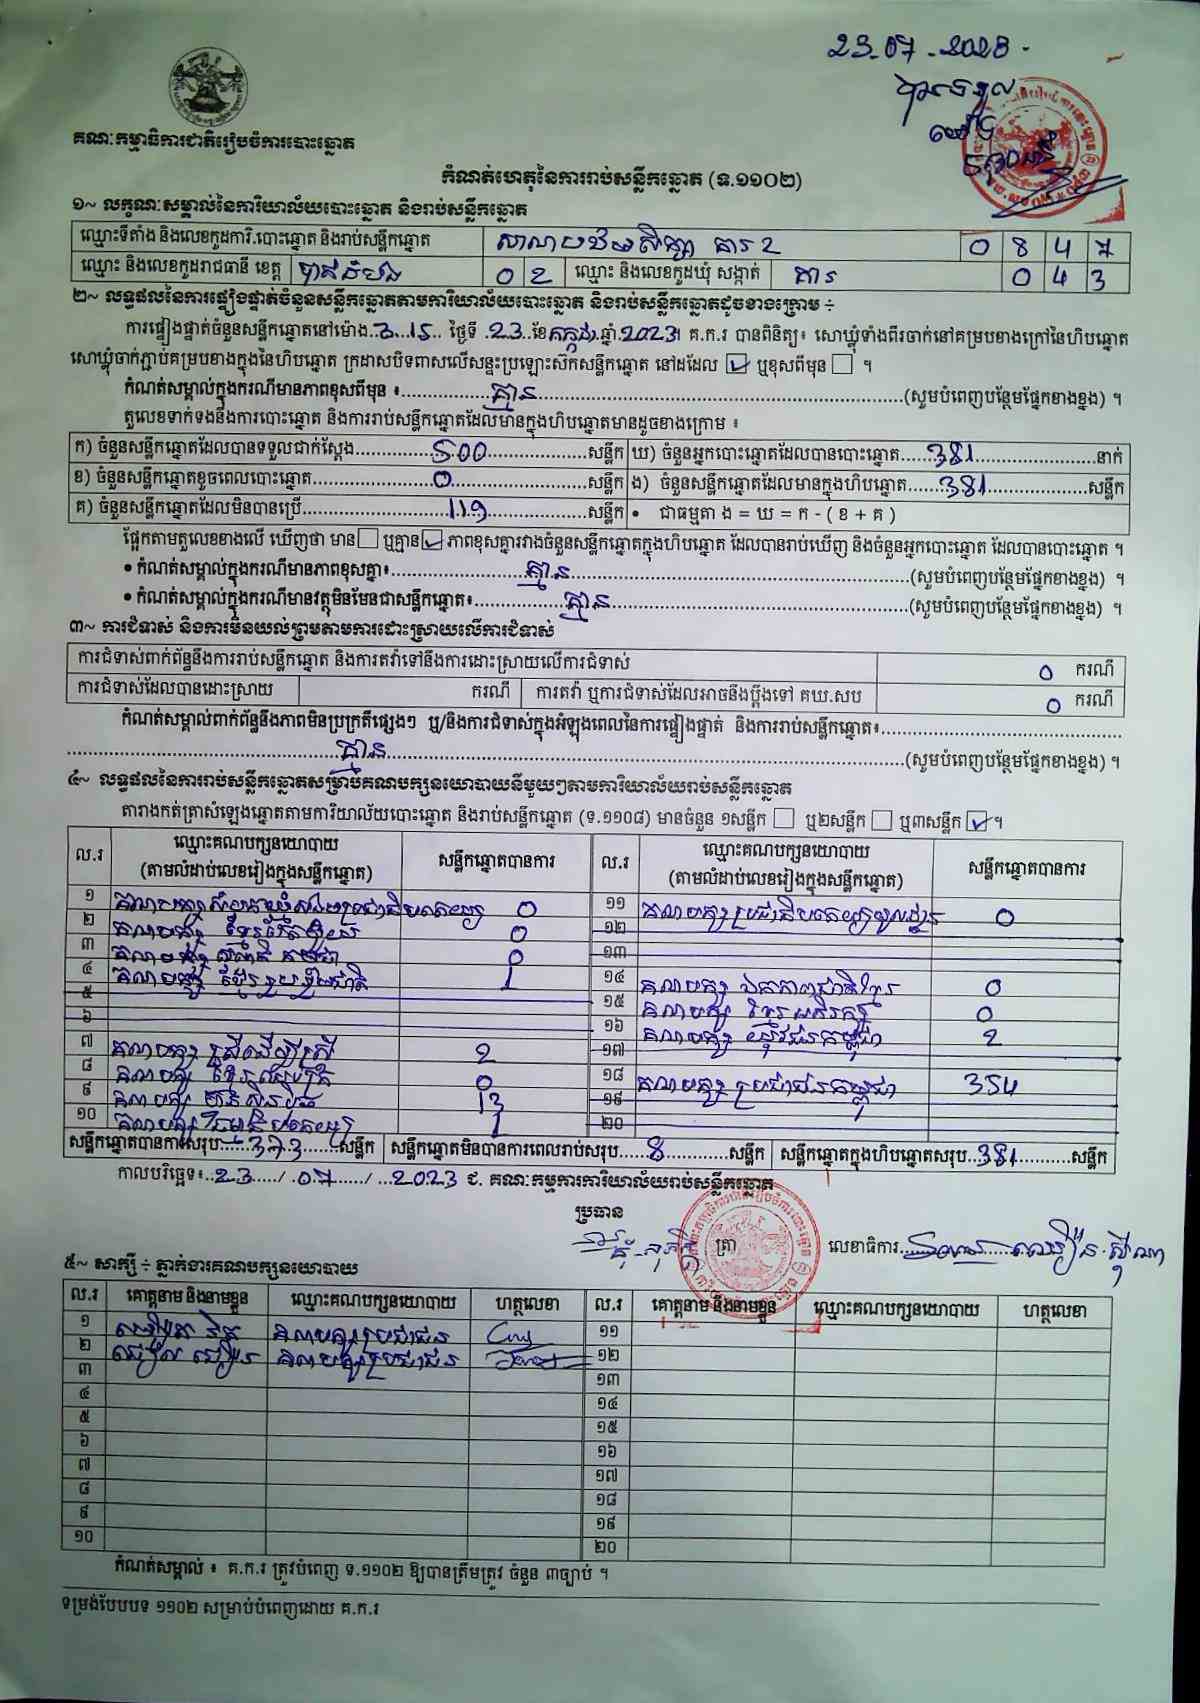 23.07.2023.
គណៈកម្មាធិការជាតិរៀបចំការបោះឆ្នោត
កំណត់ហេតុនៃការរាប់សន្លឹកឆ្នោត (ទ.១១០២)
១~ លក្ខណៈសម្គាល់នៃការិយាល័យបោះឆ្នោត និងរាប់សន្លឹកឆ្នោត
ឈ្មោះទីតាំង និងលេខកូដការិ.បោះឆ្នោត និងរាប់សន្លឹកឆ្នោត សាលាបឋមសិក្សា តារ 2 0 8 4 7
ឈ្មោះ និងលេខកូដរាជធានី ខេត្ត បាត់ដំបង 0 2 ឈ្មោះ និងលេខកូដឃុំ សង្កាត់ តារ 0 4 3
២~ លទ្ធផលនៃការផ្ទៀងផ្ទាត់ចំនួនសន្លឹកឆ្នោតតាមការិយាល័យបោះឆ្នោត និងរាប់សន្លឹកឆ្នោតដូចខាងក្រោម ÷
ការផ្ទៀងផ្ទាត់ចំនួនសន្លឹកឆ្នោតនៅម៉ោង 3:15 ថ្ងៃទី 23 ខែ កក្កដា ឆ្នាំ 2023 គ.ក.រ បានពិនិត្យ៖ សោឃ្លុំទាំងពីរចាក់នៅគម្របខាងក្រៅនៃហិបឆ្នោត
សោឃ្លុំចាក់ភ្ជាប់គម្របខាងក្នុងនៃហិបឆ្នោត ក្រដាសបិទពាសលើសន្ទះប្រឡោះស៊កសន្លឹកឆ្នោត នៅដដែល ☑ ឬខុសពីមុន ☐ ។
កំណត់សម្គាល់ក្នុងករណីមានភាពខុសពីមុន ៖ គ្មាន (សូមបំពេញបន្ថែមផ្នែកខាងខ្នង) ។
តួលេខទាក់ទងនឹងការបោះឆ្នោត និងការរាប់សន្លឹកឆ្នោតដែលមានក្នុងហិបឆ្នោតមានដូចខាងក្រោម ៖
ក) ចំនួនសន្លឹកឆ្នោតដែលបានទទួលជាក់ស្តែង 500 សន្លឹក ឃ) ចំនួនអ្នកបោះឆ្នោតដែលបានបោះឆ្នោត 381 នាក់
ខ) ចំនួនសន្លឹកឆ្នោតខូចពេលបោះឆ្នោត 0 សន្លឹក ង) ចំនួនសន្លឹកឆ្នោតដែលមានក្នុងហិបឆ្នោត 381 សន្លឹក
គ) ចំនួនសន្លឹកឆ្នោតដែលមិនបានប្រើ 119 សន្លឹក • ជាធម្មតា ង = ឃ = ក - ( ខ + គ )
ផ្អែកតាមតួលេខខាងលើ ឃើញថា មាន ☐ ឬគ្មាន ☑ ភាពខុសគ្នារវាងចំនួនសន្លឹកឆ្នោតក្នុងហិបឆ្នោត ដែលបានរាប់ឃើញ និងចំនួនអ្នកបោះឆ្នោត ដែលបានបោះឆ្នោត ។
• កំណត់សម្គាល់ក្នុងករណីមានភាពខុសគ្នា៖ គ្មាន (សូមបំពេញបន្ថែមផ្នែកខាងខ្នង) ។
• កំណត់សម្គាល់ក្នុងករណីមានវត្ថុមិនមែនជាសន្លឹកឆ្នោត៖ គ្មាន (សូមបំពេញបន្ថែមផ្នែកខាងខ្នង) ។
៣~ ការជំទាស់ និងការមិនយល់ព្រមតាមការដោះស្រាយលើការជំទាស់
ការជំទាស់ពាក់ព័ន្ធនឹងការរាប់សន្លឹកឆ្នោត និងការតវ៉ាទៅនឹងការដោះស្រាយលើការជំទាស់ 0 ករណី
ការជំទាស់ដែលបានដោះស្រាយ ករណី ការតវ៉ា ឬការជំទាស់ដែលអាចនឹងប្តឹងទៅ គឃ.សប 0 ករណី
កំណត់សម្គាល់ពាក់ព័ន្ធនឹងភាពមិនប្រក្រតីផ្សេងៗ ឬ/និងការជំទាស់ក្នុងអំឡុងពេលនៃការផ្ទៀងផ្ទាត់ និងការរាប់សន្លឹកឆ្នោត៖
គ្មាន (សូមបំពេញបន្ថែមផ្នែកខាងខ្នង) ។
៤~ លទ្ធផលនៃការរាប់សន្លឹកឆ្នោតសម្រាប់គណបក្សនយោបាយនីមួយៗតាមការិយាល័យរាប់សន្លឹកឆ្នោត
តារាងកត់ត្រាសំឡេងឆ្នោតតាមការិយាល័យបោះឆ្នោត និងរាប់សន្លឹកឆ្នោត (ទ.១១០៨) មានចំនួន ១សន្លឹក ☐ ឬ២សន្លឹក ☐ ឬ៣សន្លឹក ☑ ។
ល.រ ឈ្មោះគណបក្សនយោបាយ (តាមលំដាប់លេខរៀងក្នុងសន្លឹកឆ្នោត) សន្លឹកឆ្នោតបានការ ល.រ ឈ្មោះគណបក្សនយោបាយ (តាមលំដាប់លេខរៀងក្នុងសន្លឹកឆ្នោត) សន្លឹកឆ្នោតបានការ
១ គណបក្សសំបុកឃ្មុំសង្គមប្រជាធិបតេយ្យ 0 ១១ គណបក្សប្រជាធិបតេយ្យមូលដ្ឋាន 0
២ គណបក្ស ខ្មែរ 0 ១២
៣ គណបក្ស កម្ពុជា 0 ១៣
៤ គណបក្ស ខ្មែររួបរួមជាតិ 1 ១៤ គណបក្ស ឯកភាពជាតិខ្មែរ 0
៥ ១៥ គណបក្ស ខ្មែរ អភិរក្ស 0
៦ ១៦ គណបក្ស កម្ពុជា 2
៧ គណបក្ស ដើម្បីស្រី 2 ១៧
៨ គណបក្ស ខ្មែរ 0 ១៨ គណបក្ស ប្រជាជនកម្ពុជា 354
៩ គណបក្ស ហ្វ៊ុនស៊ិនប៉ិច 13 ១៩
១០ គណបក្ស ធម្មាធិបតេយ្យ 1 ២០
សន្លឹកឆ្នោតបានការសរុប 373 សន្លឹក សន្លឹកឆ្នោតមិនបានការពេលរាប់សរុប 8 សន្លឹក សន្លឹកឆ្នោតក្នុងហិបឆ្នោតសរុប 381 សន្លឹក
កាលបរិច្ឆេទ៖ 23 / 07 / 2023 ជ. គណៈកម្មការការិយាល័យរាប់សន្លឹកឆ្នោត
ប្រធាន
ត្រា លេខាធិការ
៥~ សាក្សី ÷ ភ្នាក់ងារគណបក្សនយោបាយ
ល.រ គោត្តនាម និងនាមខ្លួន ឈ្មោះគណបក្សនយោបាយ ហត្ថលេខា ល.រ គោត្តនាម និងនាមខ្លួន ឈ្មោះគណបក្សនយោបាយ ហត្ថលេខា
១ គណបក្សប្រជាជន ១១
២ គណបក្សប្រជាជន ១២
៣ ១៣
៤ ១៤
៥ ១៥
៦ ១៦
៧ ១៧
៨ ១៨
៩ ១៩
១០ ២០
កំណត់សម្គាល់ ៖ គ.ក.រ ត្រូវបំពេញ ទ.១១០២ ឱ្យបានត្រឹមត្រូវ ចំនួន ៣ច្បាប់ ។
ទម្រង់បែបបទ ១១០២ សម្រាប់បំពេញដោយ គ.ក.រ